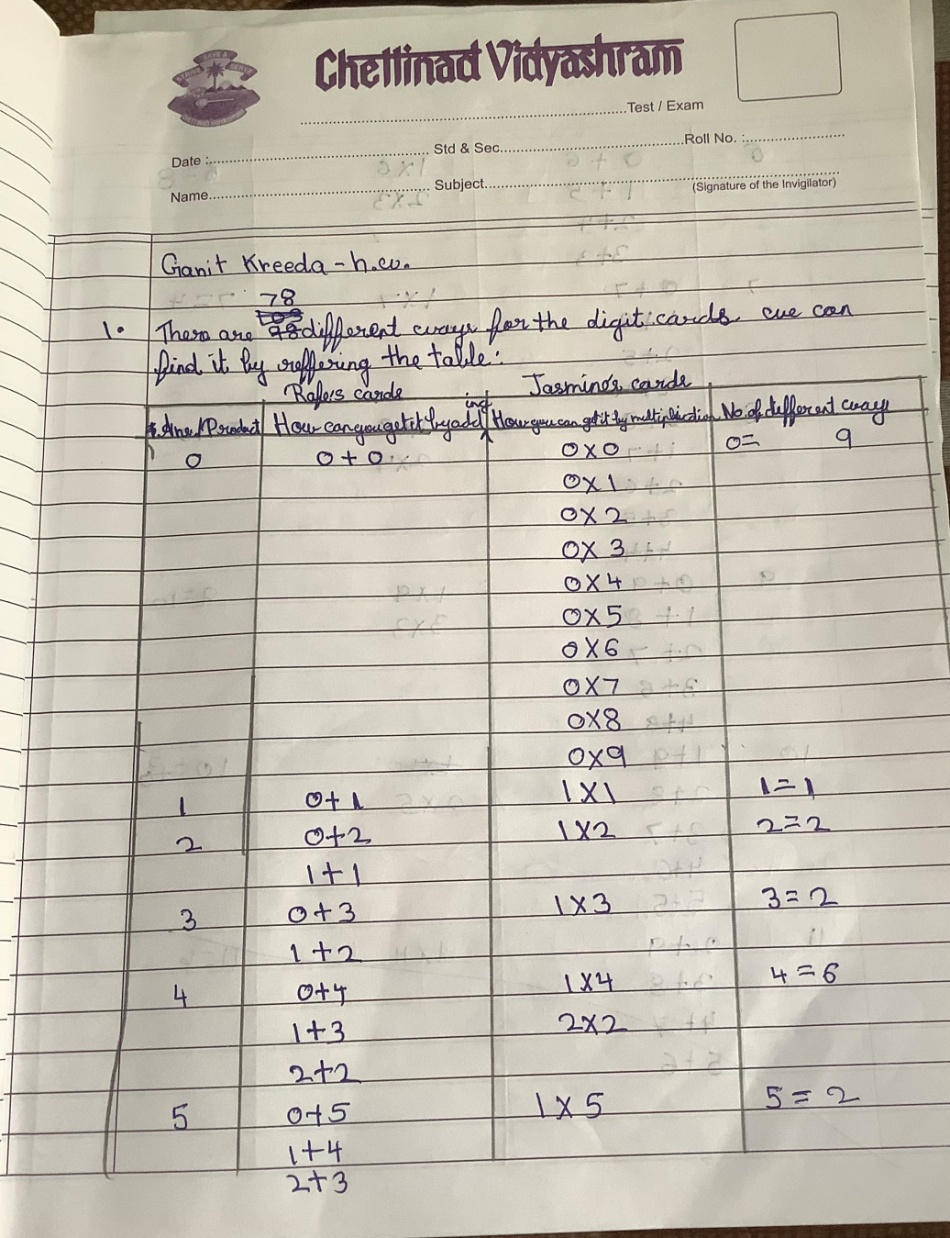 Chettinad Vidyashram
Test / Exam
Date : Std & Sec. Roll No. :
Name Subject (Signature of the Invigilator)
Ganit Kreeda - h.w.
78
1. There are different ways for the digit cards we can
find it by reffering the table:
Rafe's cards Jasmine's cards
Ans/Product How can you get it by adding How you can get it by multiplication No. of different ways
0 0+0 0X0 0= 9
0X1
0X2
0X3
0X4
0X5
0X6
0X7
0X8
0X9
1 0+1 1X1 1=1
2 0+2 1X2 2=2
1+1
3 0+3 1X3 3=2
1+2
4 0+4 1X4 4=6
1+3 2X2
2+2
5 0+5 1X5 5=2
1+4
2+3